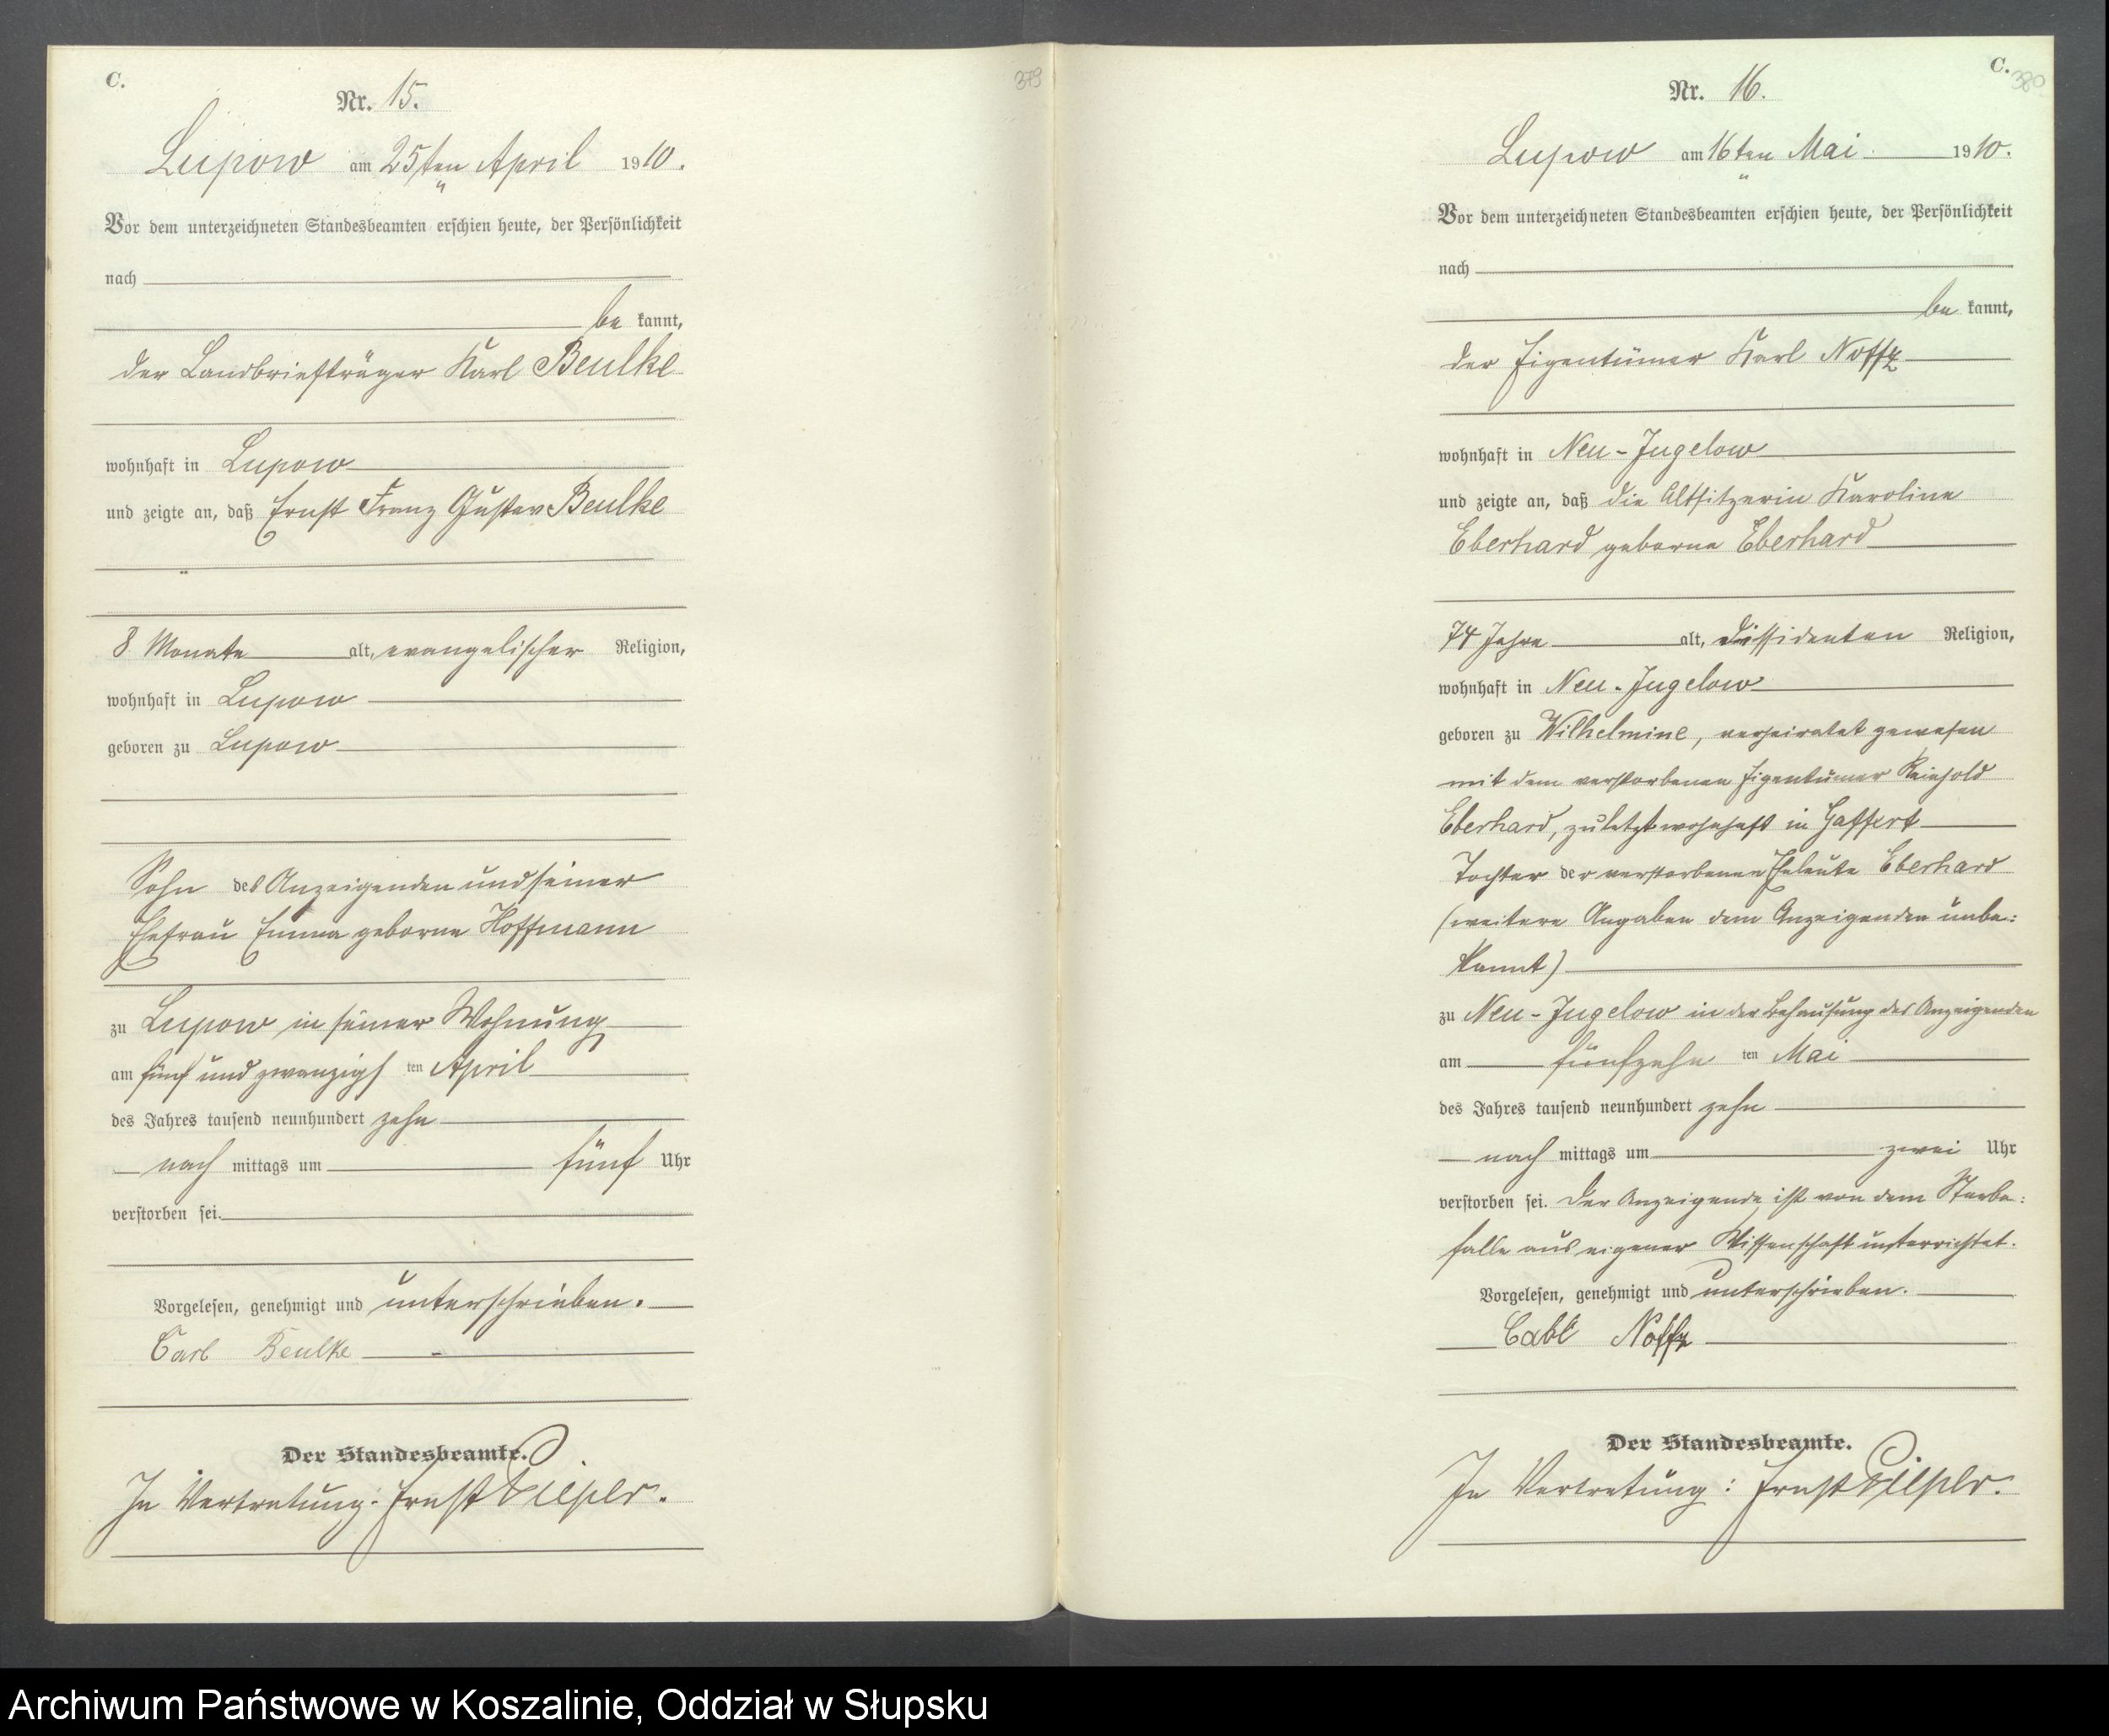 C.
379
Nr. 15.
Lupow am 25ten April 1910.
Vor dem unterzeichneten Standesbeamten erschien heute, der Persönlichkeit
nach
be kannt,
der Landbriefträger Karl Beulke
wohnhaft in Lupow
und zeigte an, daß Ernst Franz Gustav Beulke
8 Monate alt, evangelischer Religion,
wohnhaft in Lupow
geboren zu Lupow
Sohn des Anzeigenden und seiner
Ehefrau Emma geborne Hoffmann
zu Lupow in seiner Wohnung
am fünf und zwanzigsten April
des Jahres tausend neunhundert zehn
nach mittags um fünf Uhr
verstorben sei.
Vorgelesen, genehmigt und unterschrieben.
Carl Beulke
Der Standesbeamte.
In Vertretung: Ernst Piepér.
C.
380
Nr. 16.
Lupow am 16ten Mai 1910.
Vor dem unterzeichneten Standesbeamten erschien heute, der Persönlichkeit
nach
be kannt,
der Eigentümer Karl Noffz
wohnhaft in Neu-Jugelow
und zeigte an, daß die Altsitzerin Karoline
Eberhard geborne Eberhard
74 Jahre alt, Dissidenten Religion,
wohnhaft in Neu-Jugelow
geboren zu Wilhelmine, verheiratet gewesen
mit dem verstorbenen Eigentümer Reinhold
Eberhard, zuletzt wohnhaft in Gaffert
Tochter der verstorbenen Eheleute Eberhard
(weitere Angaben dem Anzeigenden unbe:
kannt)
zu Neu-Jugelow in der Behausung des Anzeigenden
am fünfzehn ten Mai
des Jahres tausend neunhundert zehn
nach mittags um zwei Uhr
verstorben sei. Der Anzeigende ist von dem Sterbe:
falle aus eigener Wissenschaft unterrichtet.
Vorgelesen, genehmigt und unterschrieben.
Noffz
Der Standesbeamte.
In Vertretung: Ernst Piepér.
Archiwum Państwowe w Koszalinie, Oddział w Słupsku